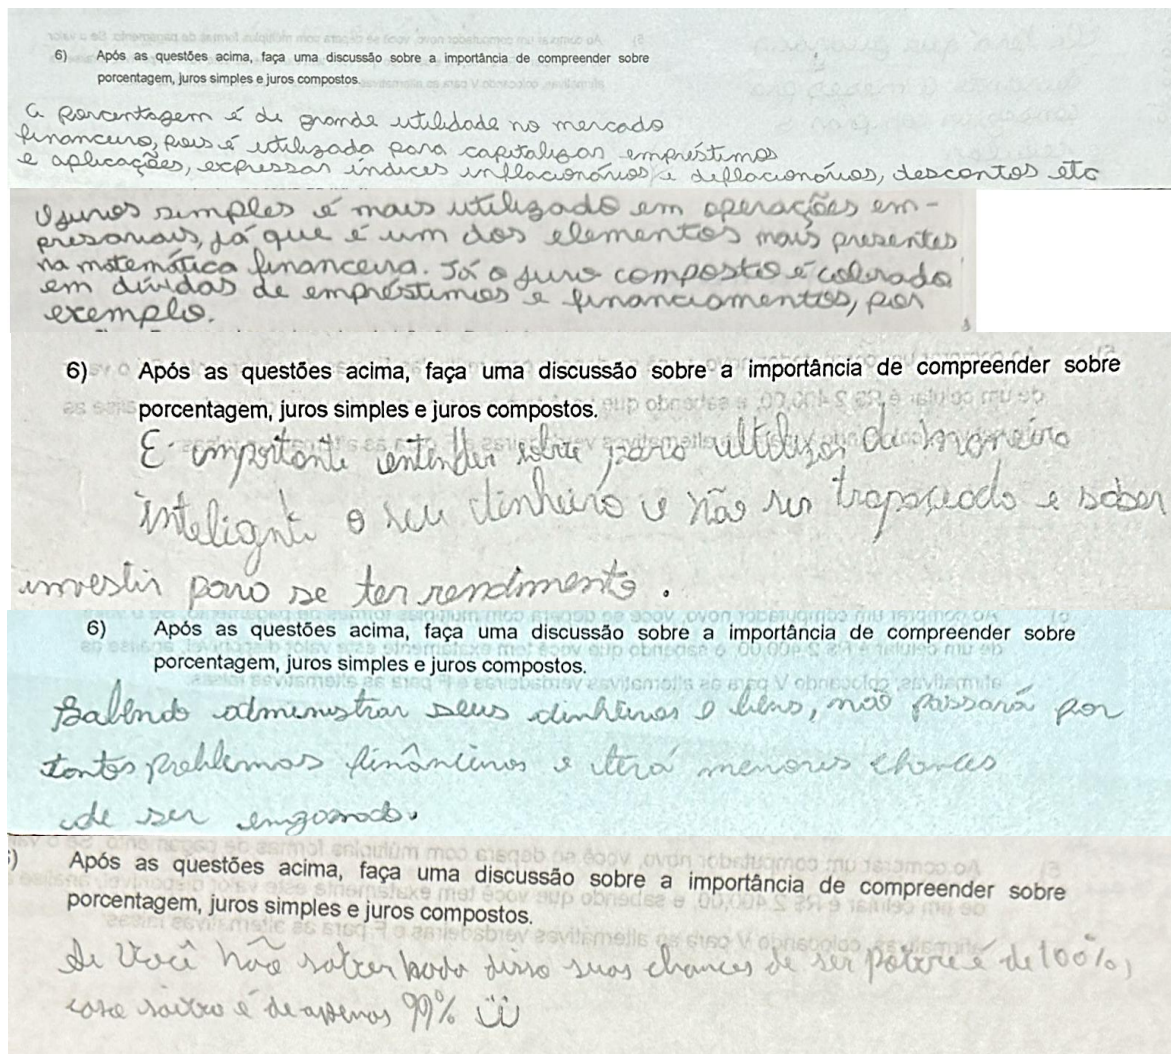 6) Após as questões acima, faça uma discussão sobre a importância de compreender sobre
porcentagem, juros simples e juros compostos.
A porcentagem é de grande utilidade no mercado
financeiro, pois é utilizada para capitalizar empréstimos
e aplicações, expressar índices inflacionários e deflacionários, descontos etc
O juros simples é mais utilizado em operações em-
presariais, já que é um dos elementos mais presentes
na matemática financeira. Já o juro composto é cobrado
em dívidas de empréstimos e financiamentos, por
exemplo.
6) Após as questões acima, faça uma discussão sobre a importância de compreender sobre
porcentagem, juros simples e juros compostos.
E importante entender sobre para ultilizar de maneira
inteligente o seu dinheiro e não ser trapaceado e saber
investir para se ter rendimento.
6) Após as questões acima, faça uma discussão sobre a importância de compreender sobre
porcentagem, juros simples e juros compostos.
Sabendo administrar seus dinheiros e bens, não passará por
tantos problemas finânceiros e terá menores chances
de ser enganado.
) Após as questões acima, faça uma discussão sobre a importância de compreender sobre
porcentagem, juros simples e juros compostos.
Se você não saber nada disso suas chances de ser pobre é de 100%,
caso saiba é de apenas 99% ü